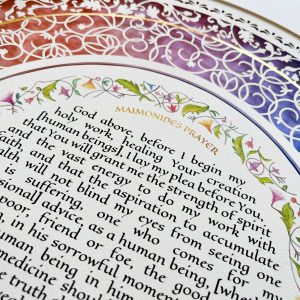 MAIMONIDE'S PRAYER
God above, before I begin my
holy work, healing Your creation
[human beings], I lay my plea before You,
that You will grant me the strength of spirit
and the vast energy to do my work with
faith, and that the aspiration to accumulate
alth will not blind my eyes from seeing one
is suffering, one who comes for
sional] advice, as a human being, [whe
poor, friend or foe, the good
n, in his sorrowful momen
man being in him
medicine shoul
e truth